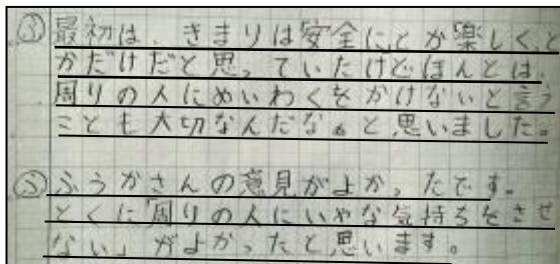 ③最初は、きまりは安全にとか楽しくと
かだけだと思っていたけどほんとは
周りの人にめいわくをかけないと言う
ことも大切なんだなぁと思いました。
⑤ふうかさんの意見がよかったです。
とくに「周りの人にいやな気持ちをさせ
ない」がよかったと思います。